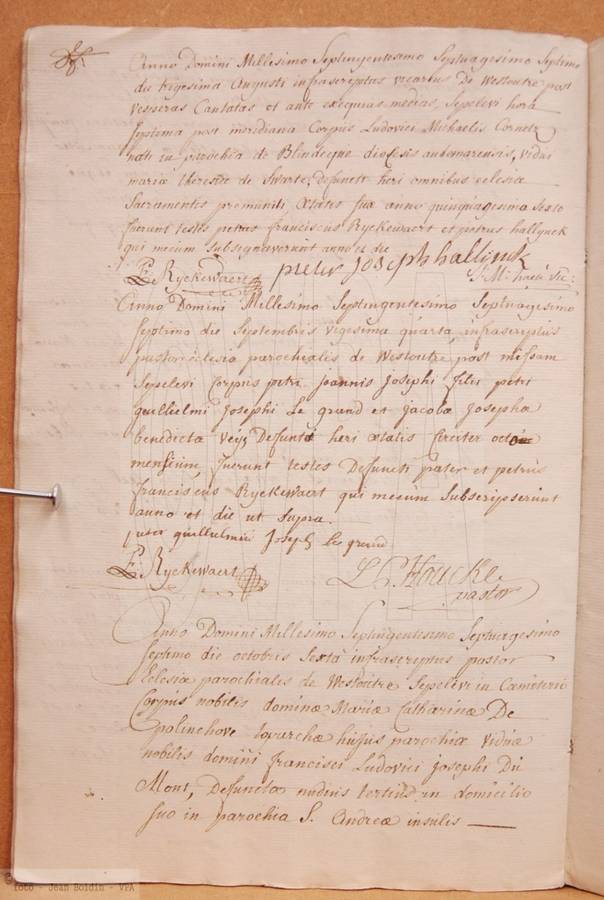 Anno Domini Millesimo Septingentesimo Septuagesimo Septimo
die trigesima Augusti infrascriptus vicarius De Westoutre post
vesperas Cantatas et ante exequias medias, Sepelevi hora
septima post meridiana Corpus Ludovici Michaelis Cornetz
nati in parochia de Blindecque diocesis audomarensis, vidui
mariæ theresiæ de Swarte, defuncti heri omnibus eclesiæ
Sacramentis premuniti Ætatis suæ anno quinquagesimo Sexto
fuerunt testes petrus franciscus Ryckewaert et petrus hallynck
qui mecum subsegnaverunt anno et die
P. Ryckewaert pieter Joseph hallinck
Anno Domini Millesimo Septingentesimo Septuagesimo
Septimo die Septembris vigesima quarta, infrascriptus
pastor eclesiæ parochiales de Westoutre post missam
Sepelevi Corpus petri joannis Josephi filii petri
guillielmi Josephi Le grand et jacobæ Josepha
benedicta Defuncti heri ætatis circiter
mensium, fuerunt testes Defuncti pater et petrus
franciscus Ryckewaert qui mecum Subscripserunt
anno et die ut Supra.
guillulmus Joseph le grand
P. Ryckewaert
pastor
Anno Domini Millesimo Septingentesimo Septuagesimo
Septimo die octobris Sexta infrascriptus pastor
Eclesiæ parochiales de Westoutre Sepelivi in Cæmiterio
Corpus nobilis dominæ Mariæ Catharinæ De
Polinchove toparchæ hujus parochiæ viduæ
nobilis domini francisci Ludovici josephi Du
Mont, Defuncta nudius tertius in domicilio
suo in parochia S. Andreæ insulis
foto - Jean Boidin - VPA